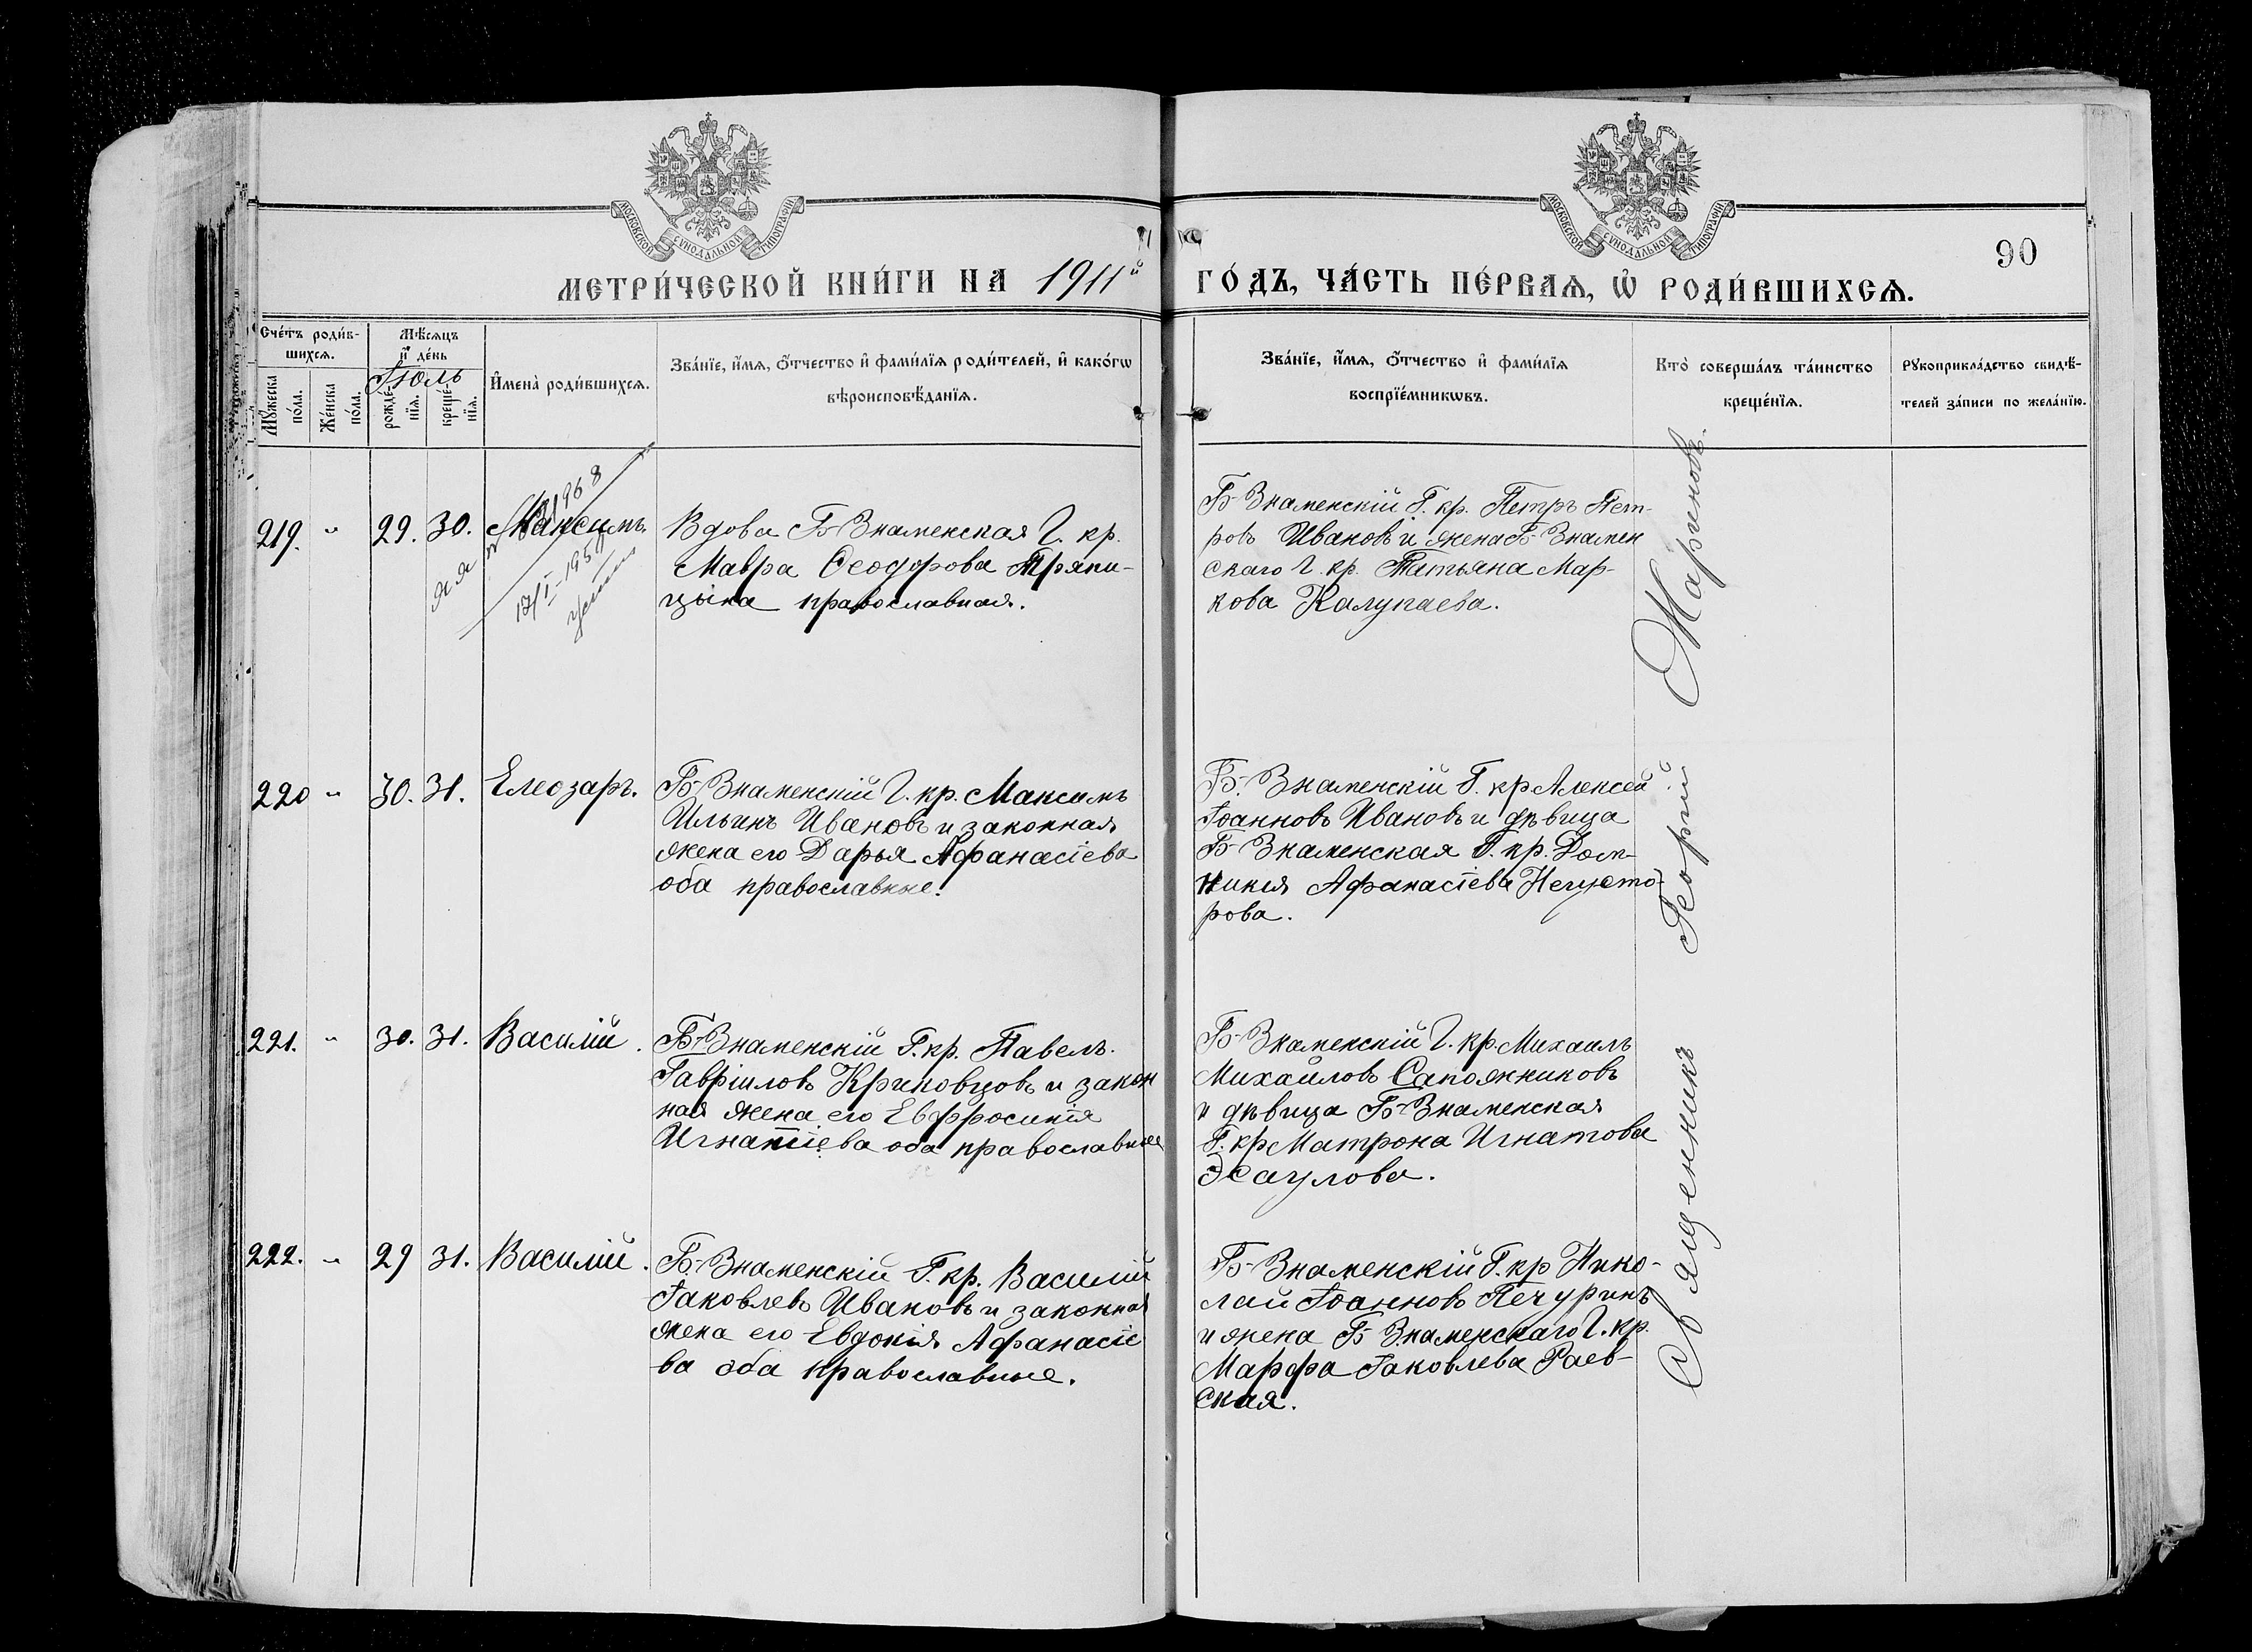 МОСКОВСКОЙ СѴНОДАЛЬНОЙ ТИПОГРАФІИ
МОСКОВСКОЙ СѴНОДАЛЬНОЙ ТИПОГРАФІИ
90
МЕТРИ́ЧЕСКОЙ КНИ́ГИ НА 1911й ГО́ДЪ, ЧА́СТЬ ПЕ́РВАѦ, Ѡ҆ РОДИ́ВШИХСѦ.
Сче́тъ роди́в-
шихсѧ.
Мꙋ́жеска
по́ла.
Же́нска
по́ла.
Мѣ́сѧцъ
и҆ де́нь
Іюль
рожде́-
нїѧ.
креще́-
нїѧ.
И҆мена̀ роди́вшихсѧ.
Зва́нїе, и҆́мѧ, ѻ҆́тчество и҆ фами́лїѧ роди́телей, и҆ како́гѡ
вѣроисповѣ́данїѧ.
Зва́нїе, и҆́мѧ, ѻ҆́тчество и҆ фами́лїѧ
воспрїе́мникѡвъ.
Кто̀ соверша́лъ та́инство
креще́нїѧ.
Рꙋкоприкла́дство свидѣ́-
телей за́писи по жела́нїю.
219. " 29. 30. Максимъ.
Вдова Б-Знаменская Г. кр.
Мавра Ѳеодорова Тряпи-
цына православная.
Б-Знаменскій Г. кр. Петръ Пет-
ровъ Ивановъ и жена Б-Знамен
скаго Г. кр. Татьяна Мар-
кова Калупаева.
220 " 30. 31. Елеозаръ.
Б-Знаменскій Г. кр. Максимъ
Ильинъ Ивановъ и законная
жена его Дарья Афанасіева
оба православные.
Б. Знаменскій Г. кр Алексей
Іоанновъ Ивановъ и дѣвица
Б-Знаменская Г. кр. Дом-
никия Афанасіева
рова.
221. " 30. 31. Василій.
Б-Знаменскій Г. кр. Павелъ
Гавріиловъ Криковцовъ и закон
ная жена его Евфросинія
Игнатіева оба православные
Б-Знаменскій Г. кр. Михаилъ
Михаиловъ Сапожниковъ
и дѣвица Б-Знаменская
Г. кр Матрона Игнатова
Эсаулова.
222. " 29 31. Василій.
Б-Знаменскій Г. кр. Василій
Іаковлевъ Ивановъ и законная
жена его Евдокія Афанасіе
ва оба православные.
Б-Знаменскій Г. кр Нико-
лай Іоанновъ Печуринъ
и жена Б Знаменскаго Г. кр.
Марфа Іаковлева Раев-
ская.
Священникъ Георгій Мариновъ.